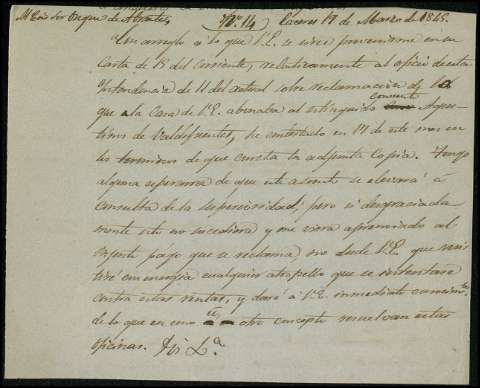 Exmo Sor Duque de Abrantes, (Nº. 14) Caceres 17 de Marzo de 1845.
Con arreglo á lo que V.E. se sirve prevenirme en su
Carta de 13 del corriente, relativamente al oficio de esta
Intendencia de 11 del actual sobre reclamacion de
que la Casa de V.E. abonaba al extinguido convento Agus
tinos de Valdefuentes, he contestado en 17 de este mes en
los terminos de que consta la adjunta Copia. Tengo
alguna esperanza de que este asunto se elevará á
consulta de la superioridad; pero si desgraciada
mente esto no sucediera y me viera apremiado al
pago que se reclama, no dude V.E. que resis
tiré con energia cualquier atropello que se intentare
contra estas rentas, y daré á V.E. inmediato conocim.to
de lo que en uno ú otro concepto resuelvan estas
oficinas.